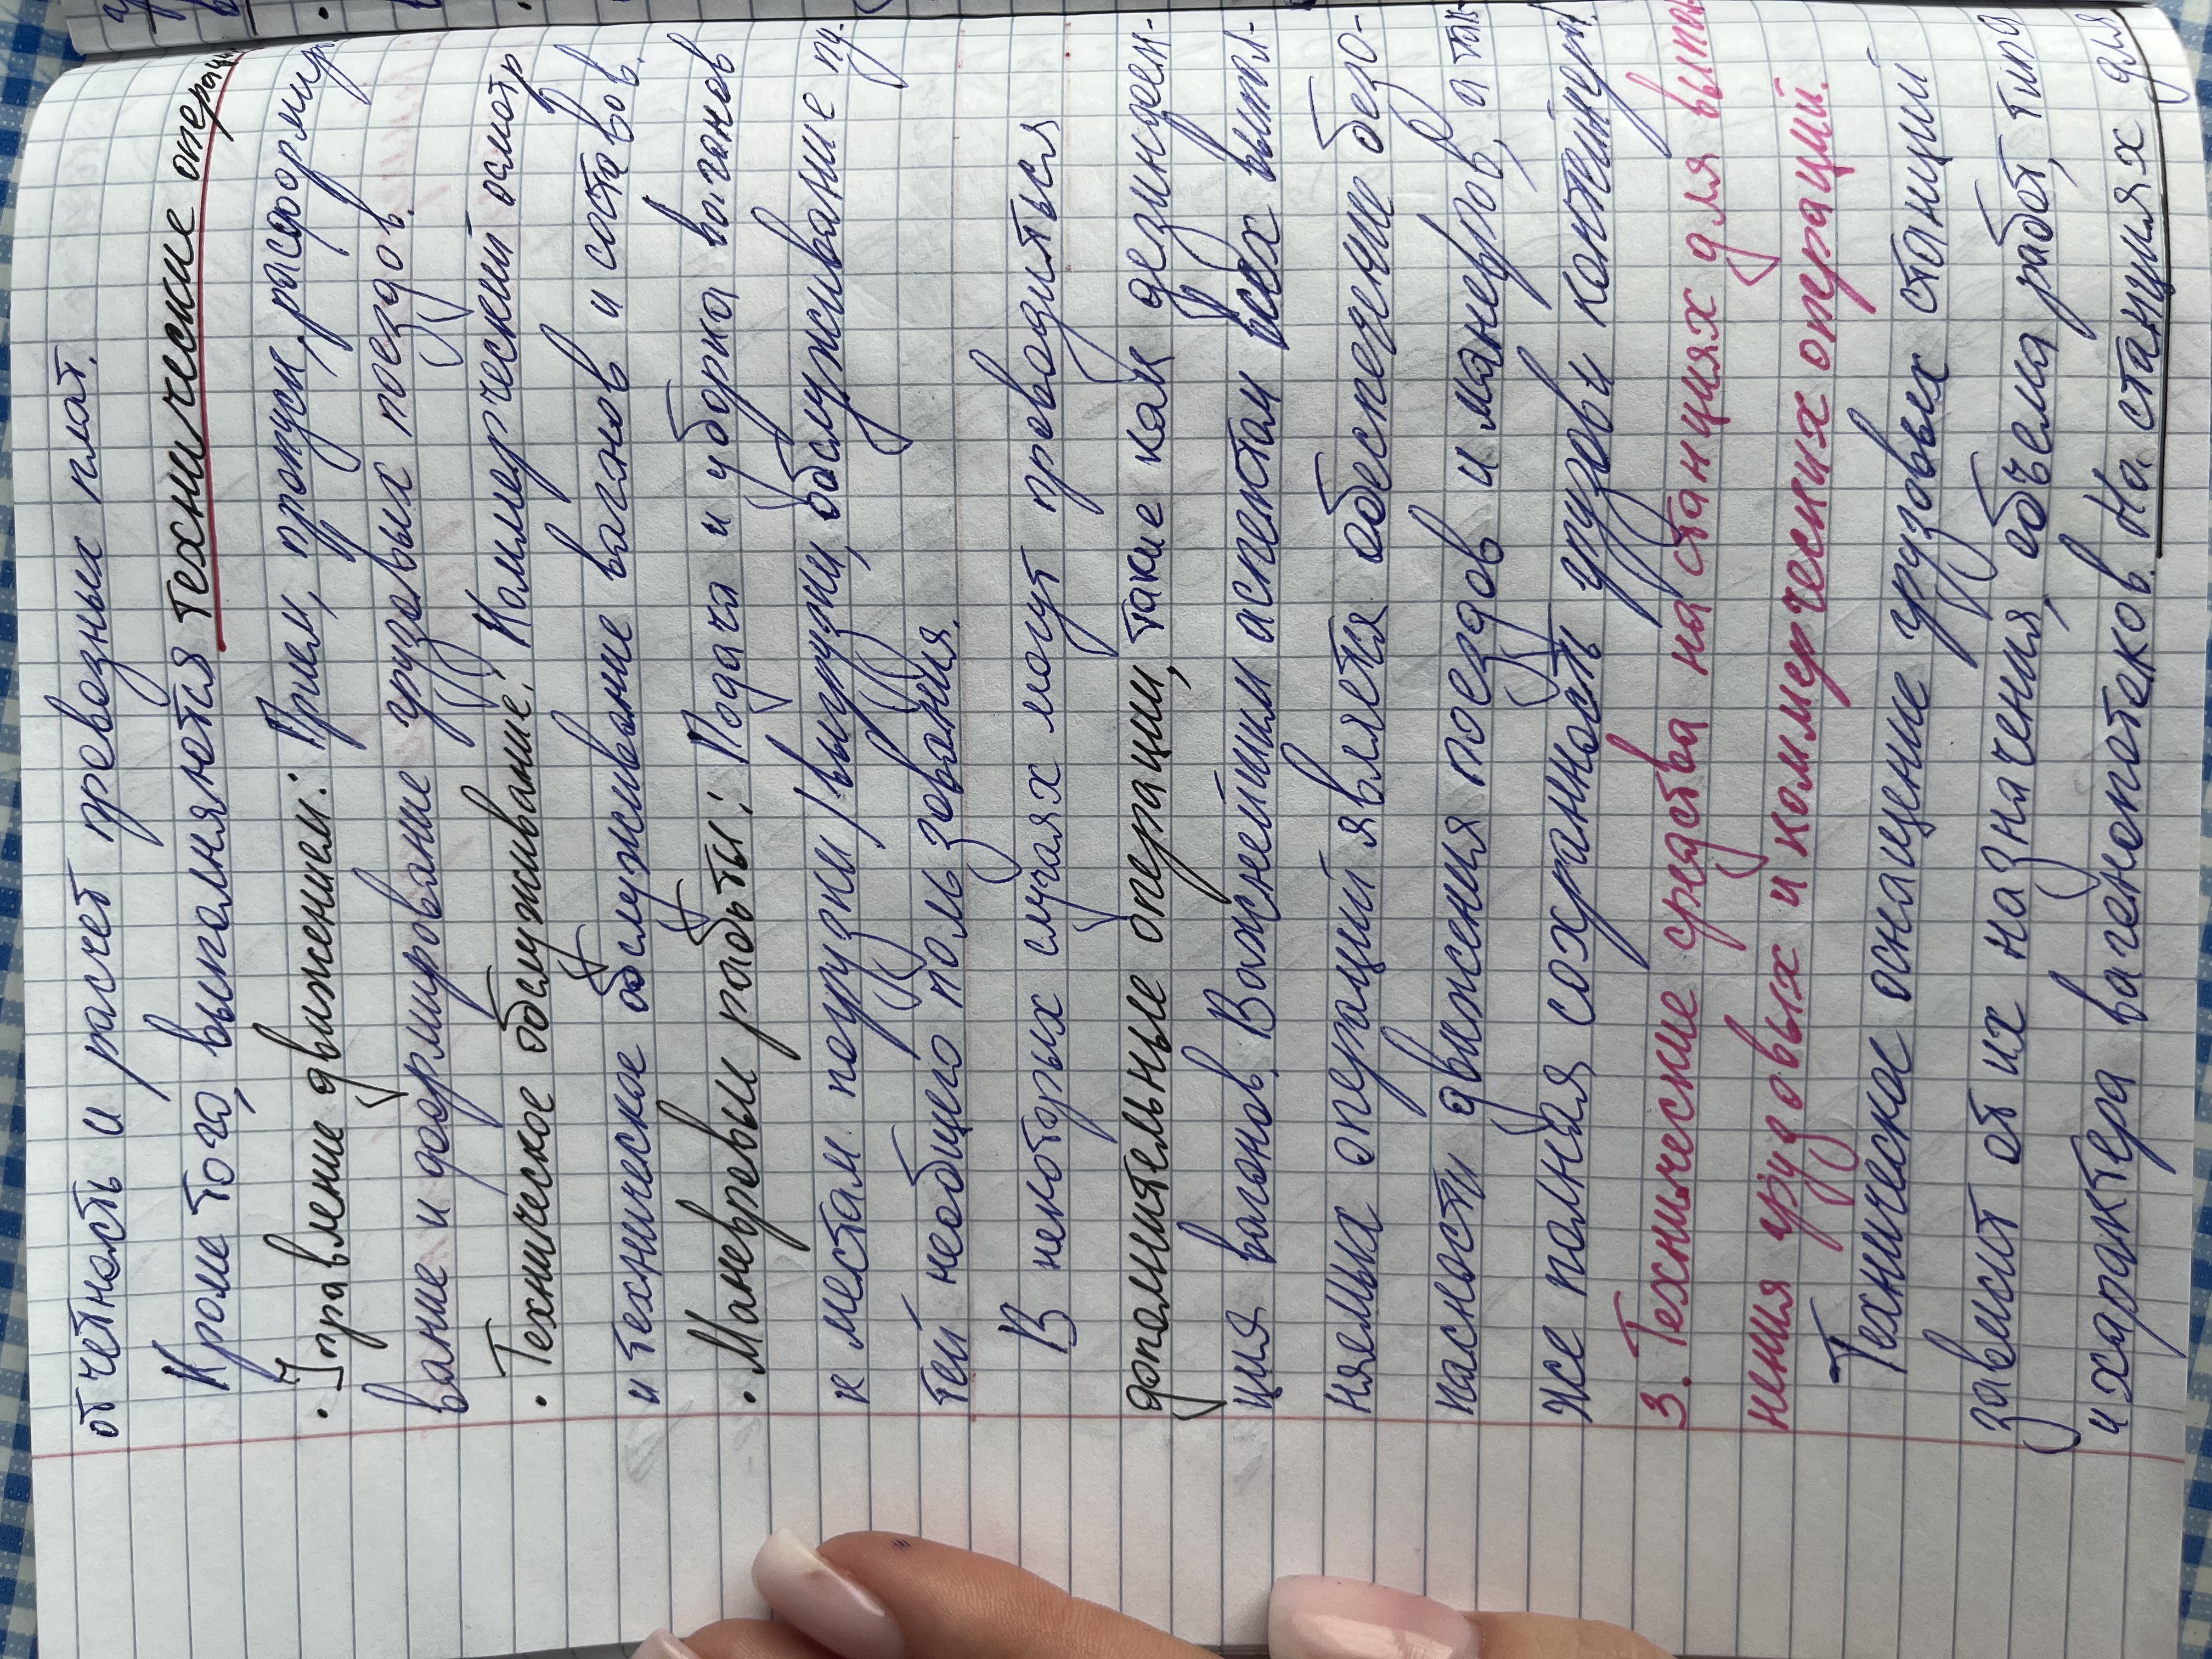 отчетность и расчет провозных плат.
Кроме того, выполняются технические операции
· Управление движением: Прием, пропуск, расформиро
вание и формирование грузовых поездов.
· Техническое обслуживание: Коммерческий осмотр
и техническое обслуживание вагонов и составов.
· Маневровые работы: Подача и уборка вагонов
к местам погрузки/выгрузки, обслуживание пу-
тей необщего пользования.
В некоторых случаях могут проводиться
дополнительные операции, такие как дезинфек-
ция вагонов. Важнейшим аспектом всех выпол-
няемых операций является обеспечение безо-
пасности движения поездов и маневров, а так-
же полная сохранность грузов и контейнеров.
3. Технические средства на станциях для выпол-
нения грузовых и коммерческих операций.
Техническое оснащение грузовых станций
зависит от их назначения, объема работ, типа
и характера вагонопотоков. На станциях для